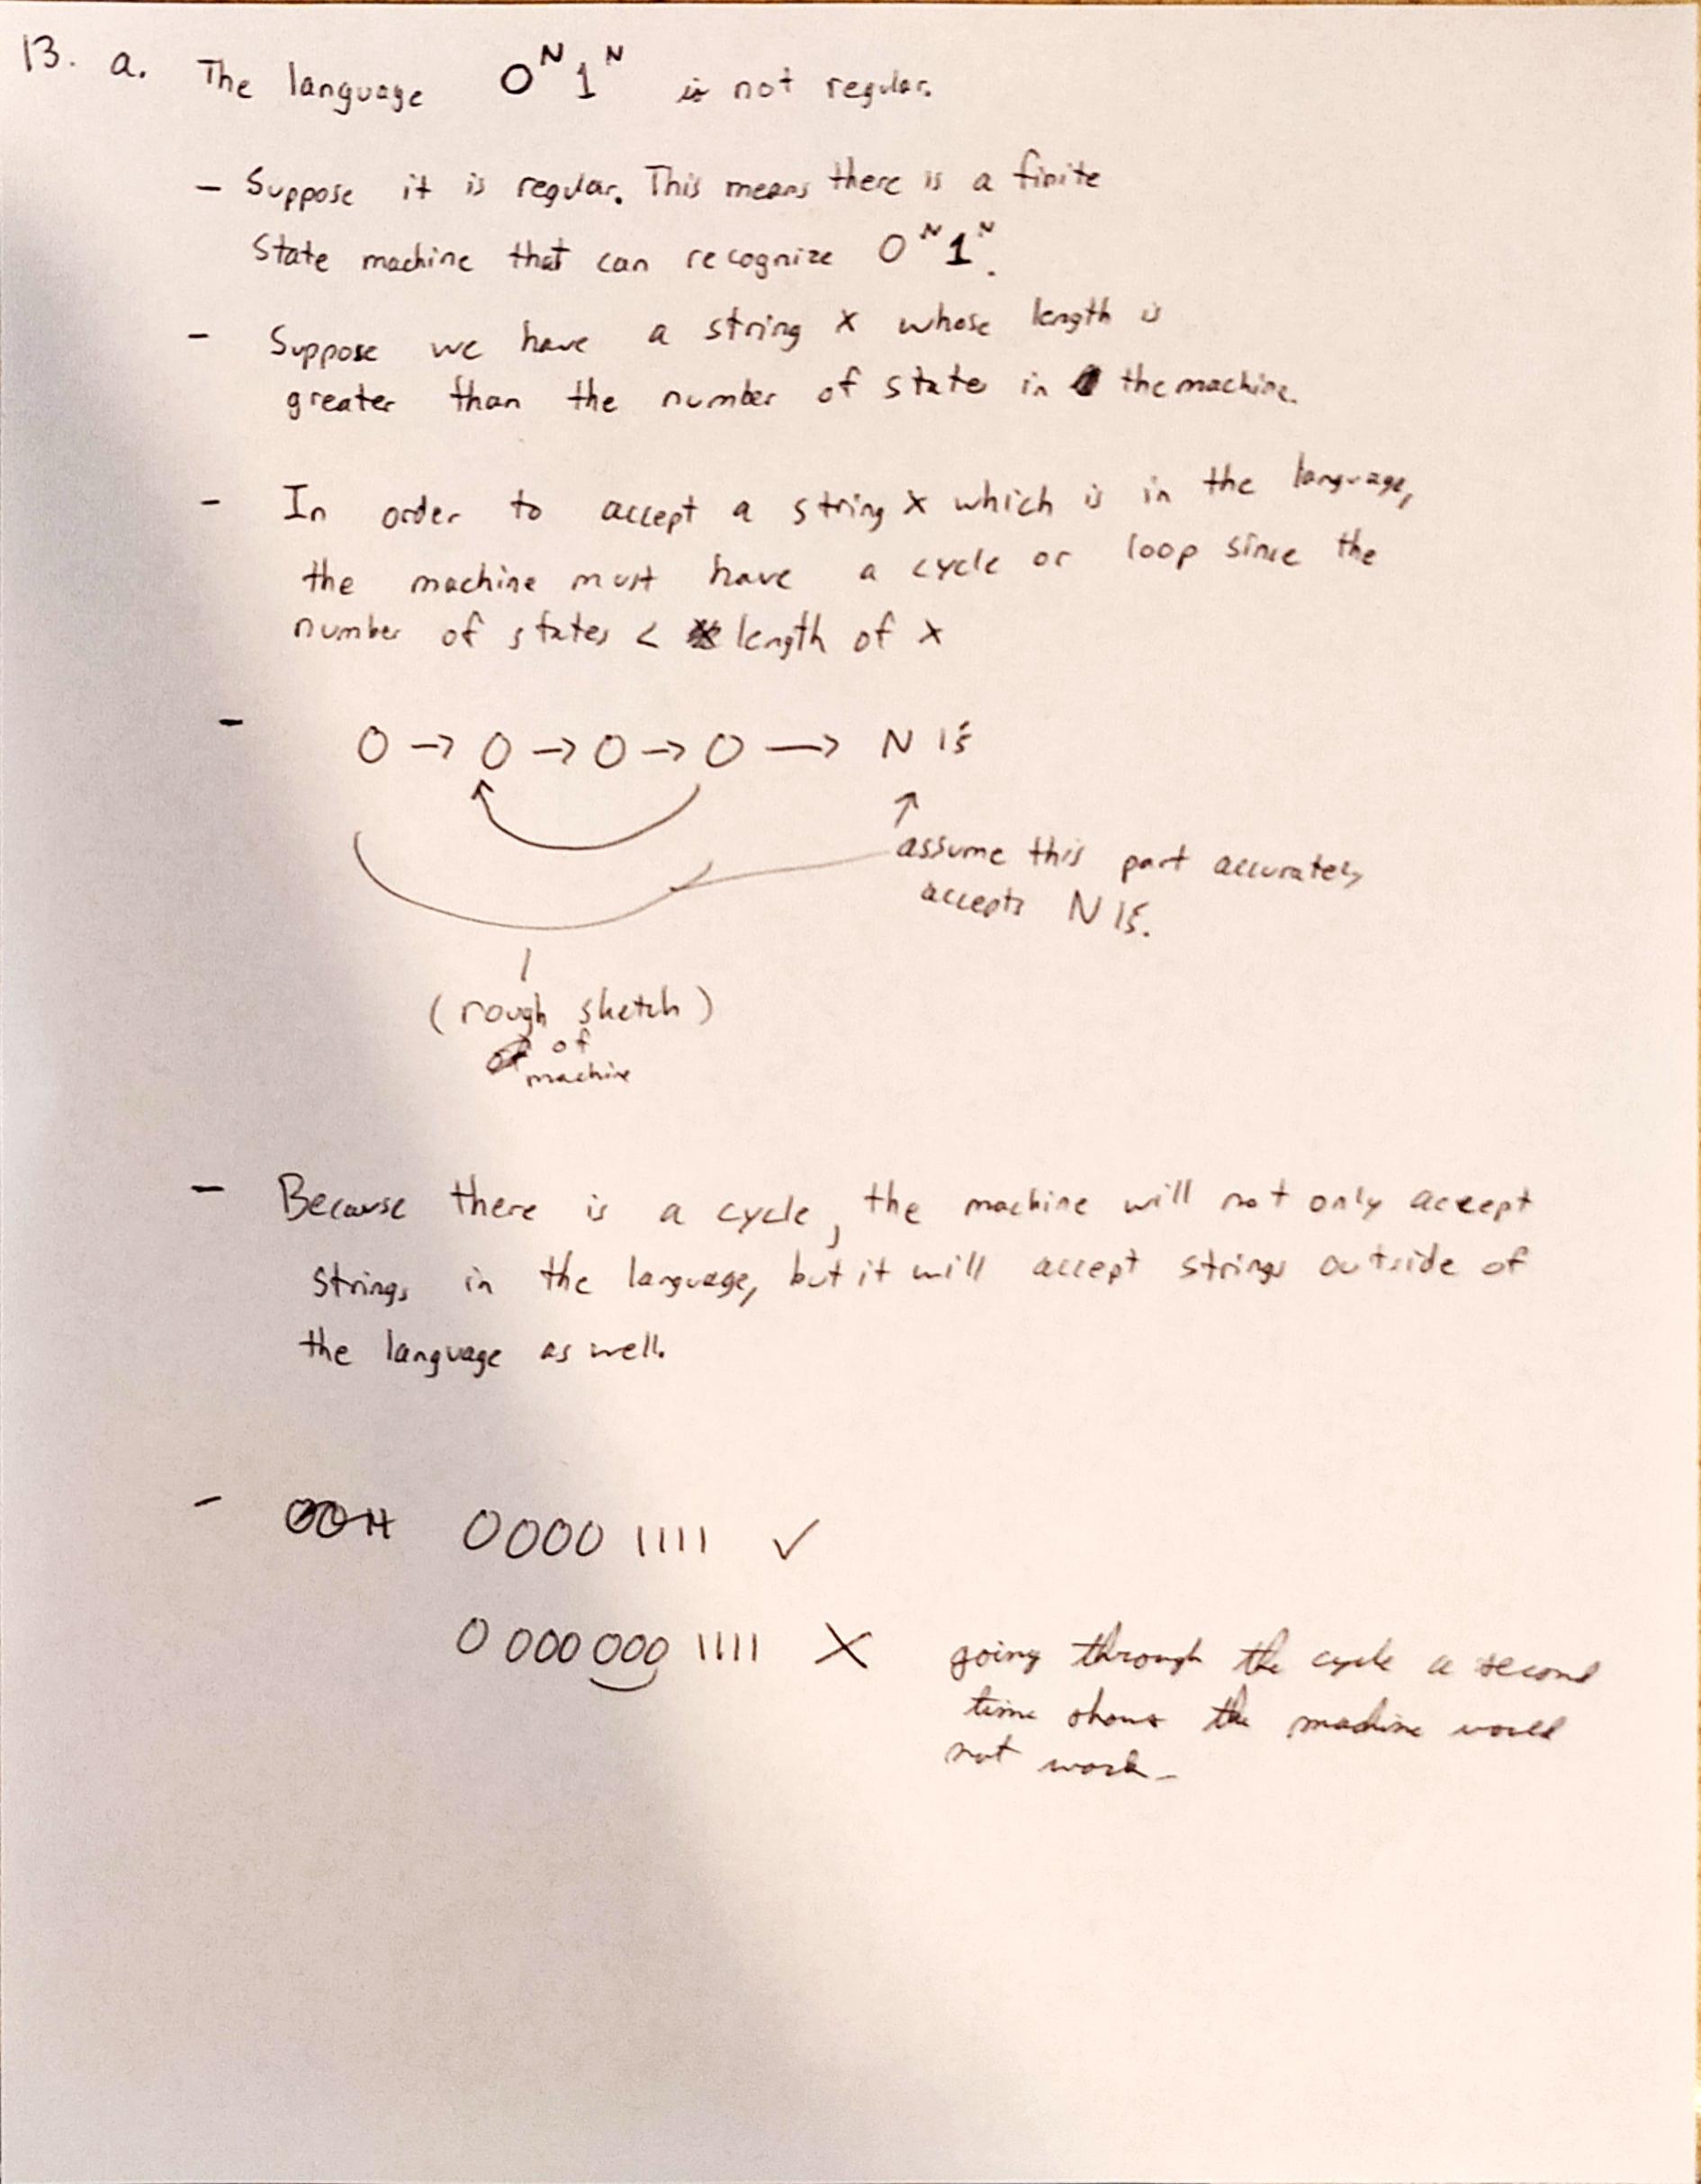 13. a. The language 0^N 1^N is not regular.
- Suppose it is regular. This means there is a finite
state machine that can recognize 0^N 1^N.
- Suppose we have a string x whose length is
greater than the number of state in the machine.
- In order to accept a string x which is in the language,
the machine must have a cycle or loop since the
number of states < length of x
- 0 → 0 → 0 → 0 → N 1's
assume this part accurately
accepts N 1's.
(rough sketch)
of
machine
- Because there is a cycle, the machine will not only accept
strings in the language, but it will accept strings outside of
the language as well.
- 0000 1111 ✓
0 000 000 1111 X going through the cycle a second
time shows the machine would
not work.